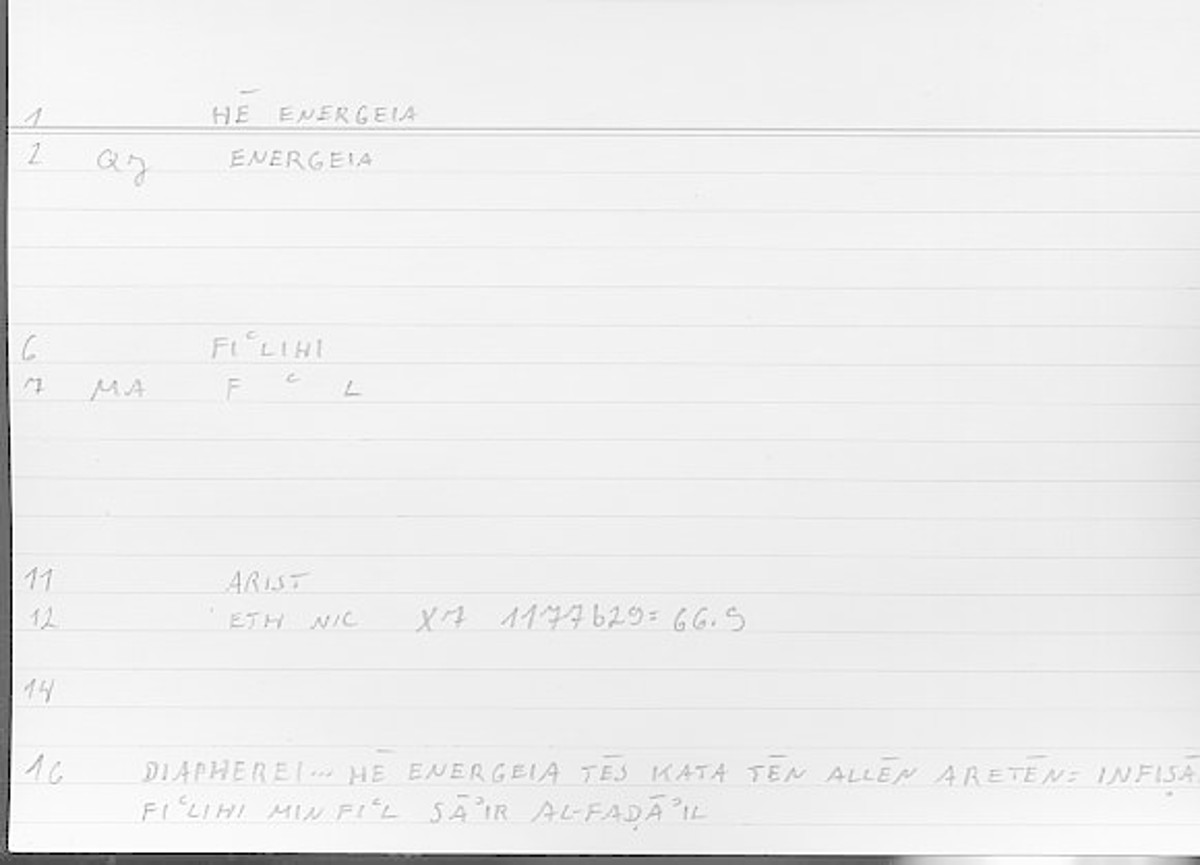 1 HĒ ENERGEIA
2 Qγ ENERGEIA
6 FIʿLIHI
7 MA F ʿ L
11 ARIST
12 ETH NIC X7 1177b29= 66.9
14
16 DIAPHEREI... HĒ ENERGEIA TĒS KATA TĒN ALLĒN ARETĒN= INFIṢĀ
FIʿLIHI MIN FIʿL SĀʾIR AL-FAḌĀʾIL